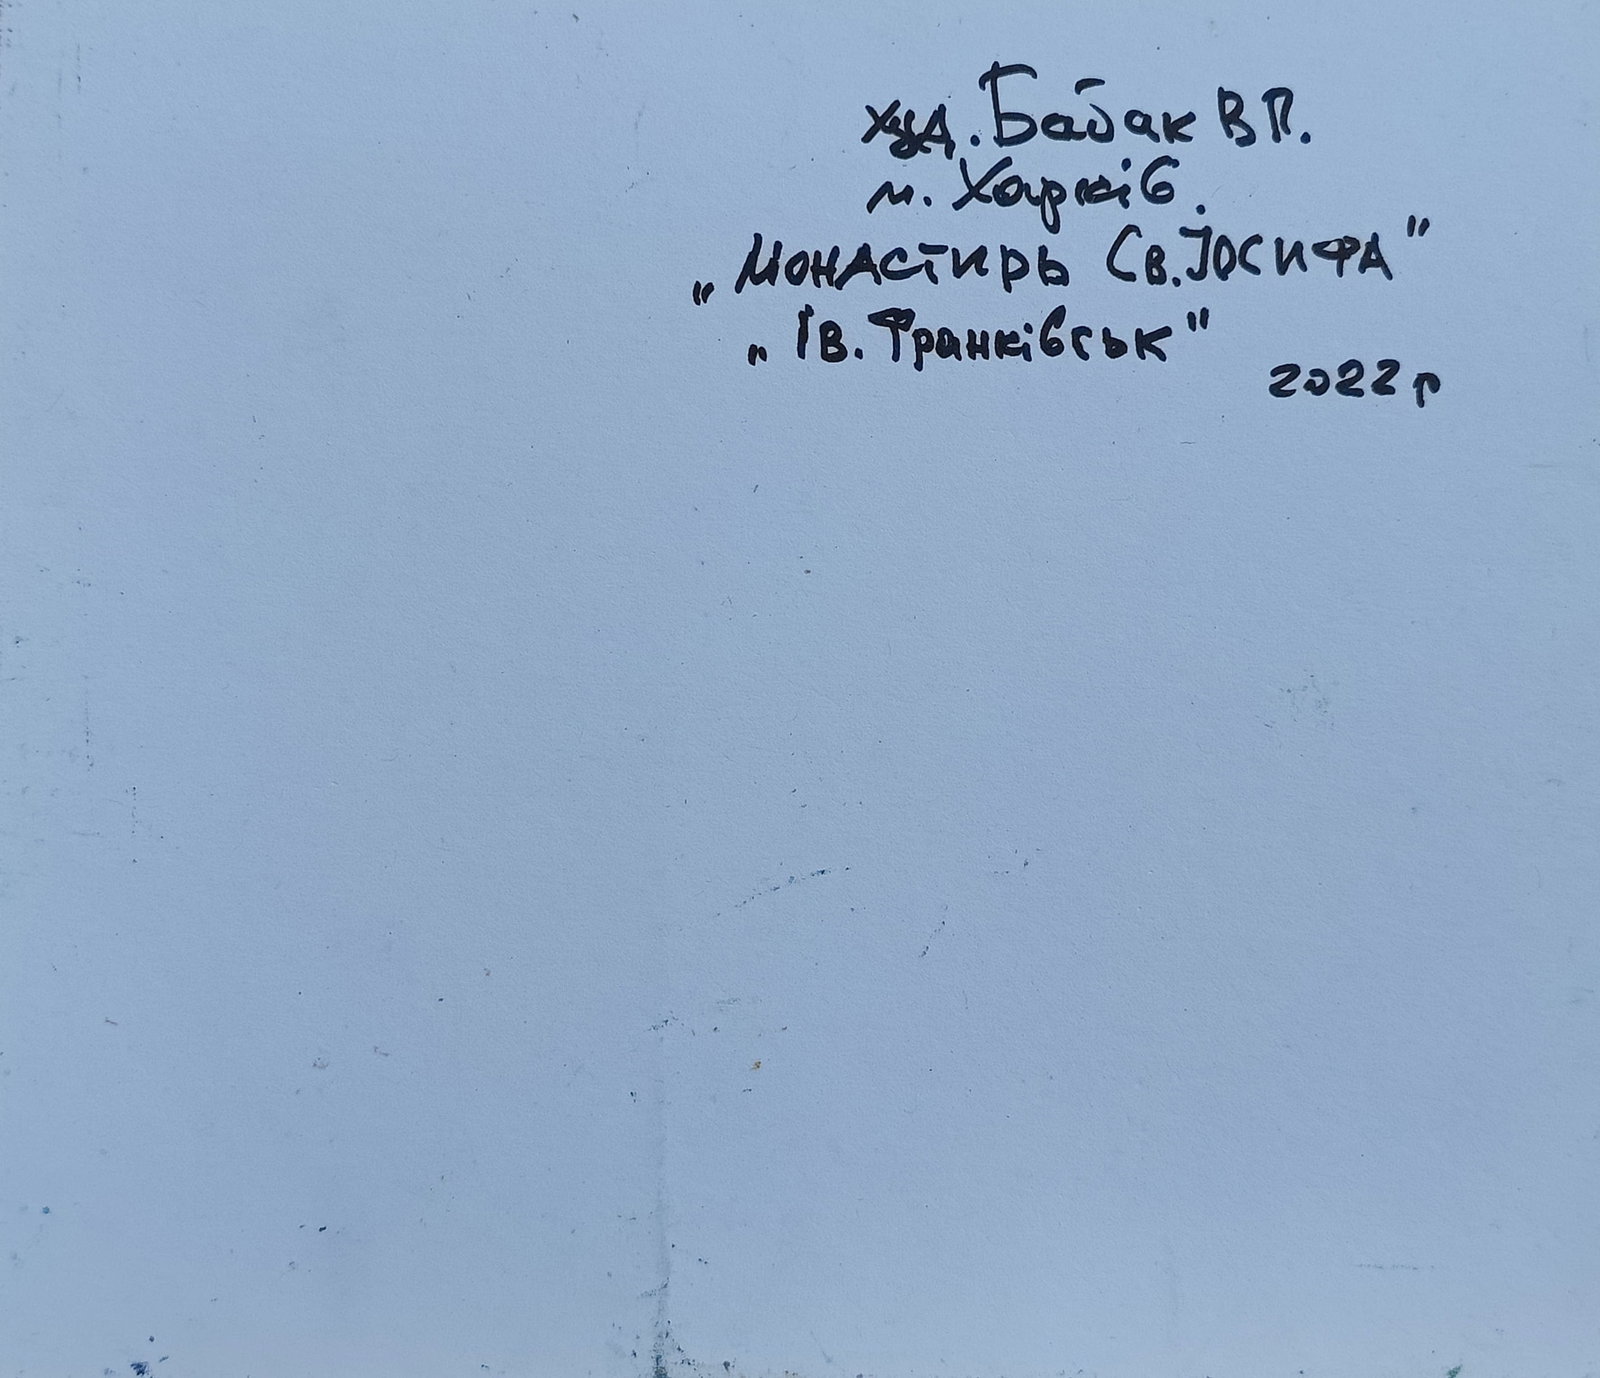 худ. Бабак В П.
м. Харків.
„Монастирь Св. Іосифа"
„Ів. Франківськ"
2022 р